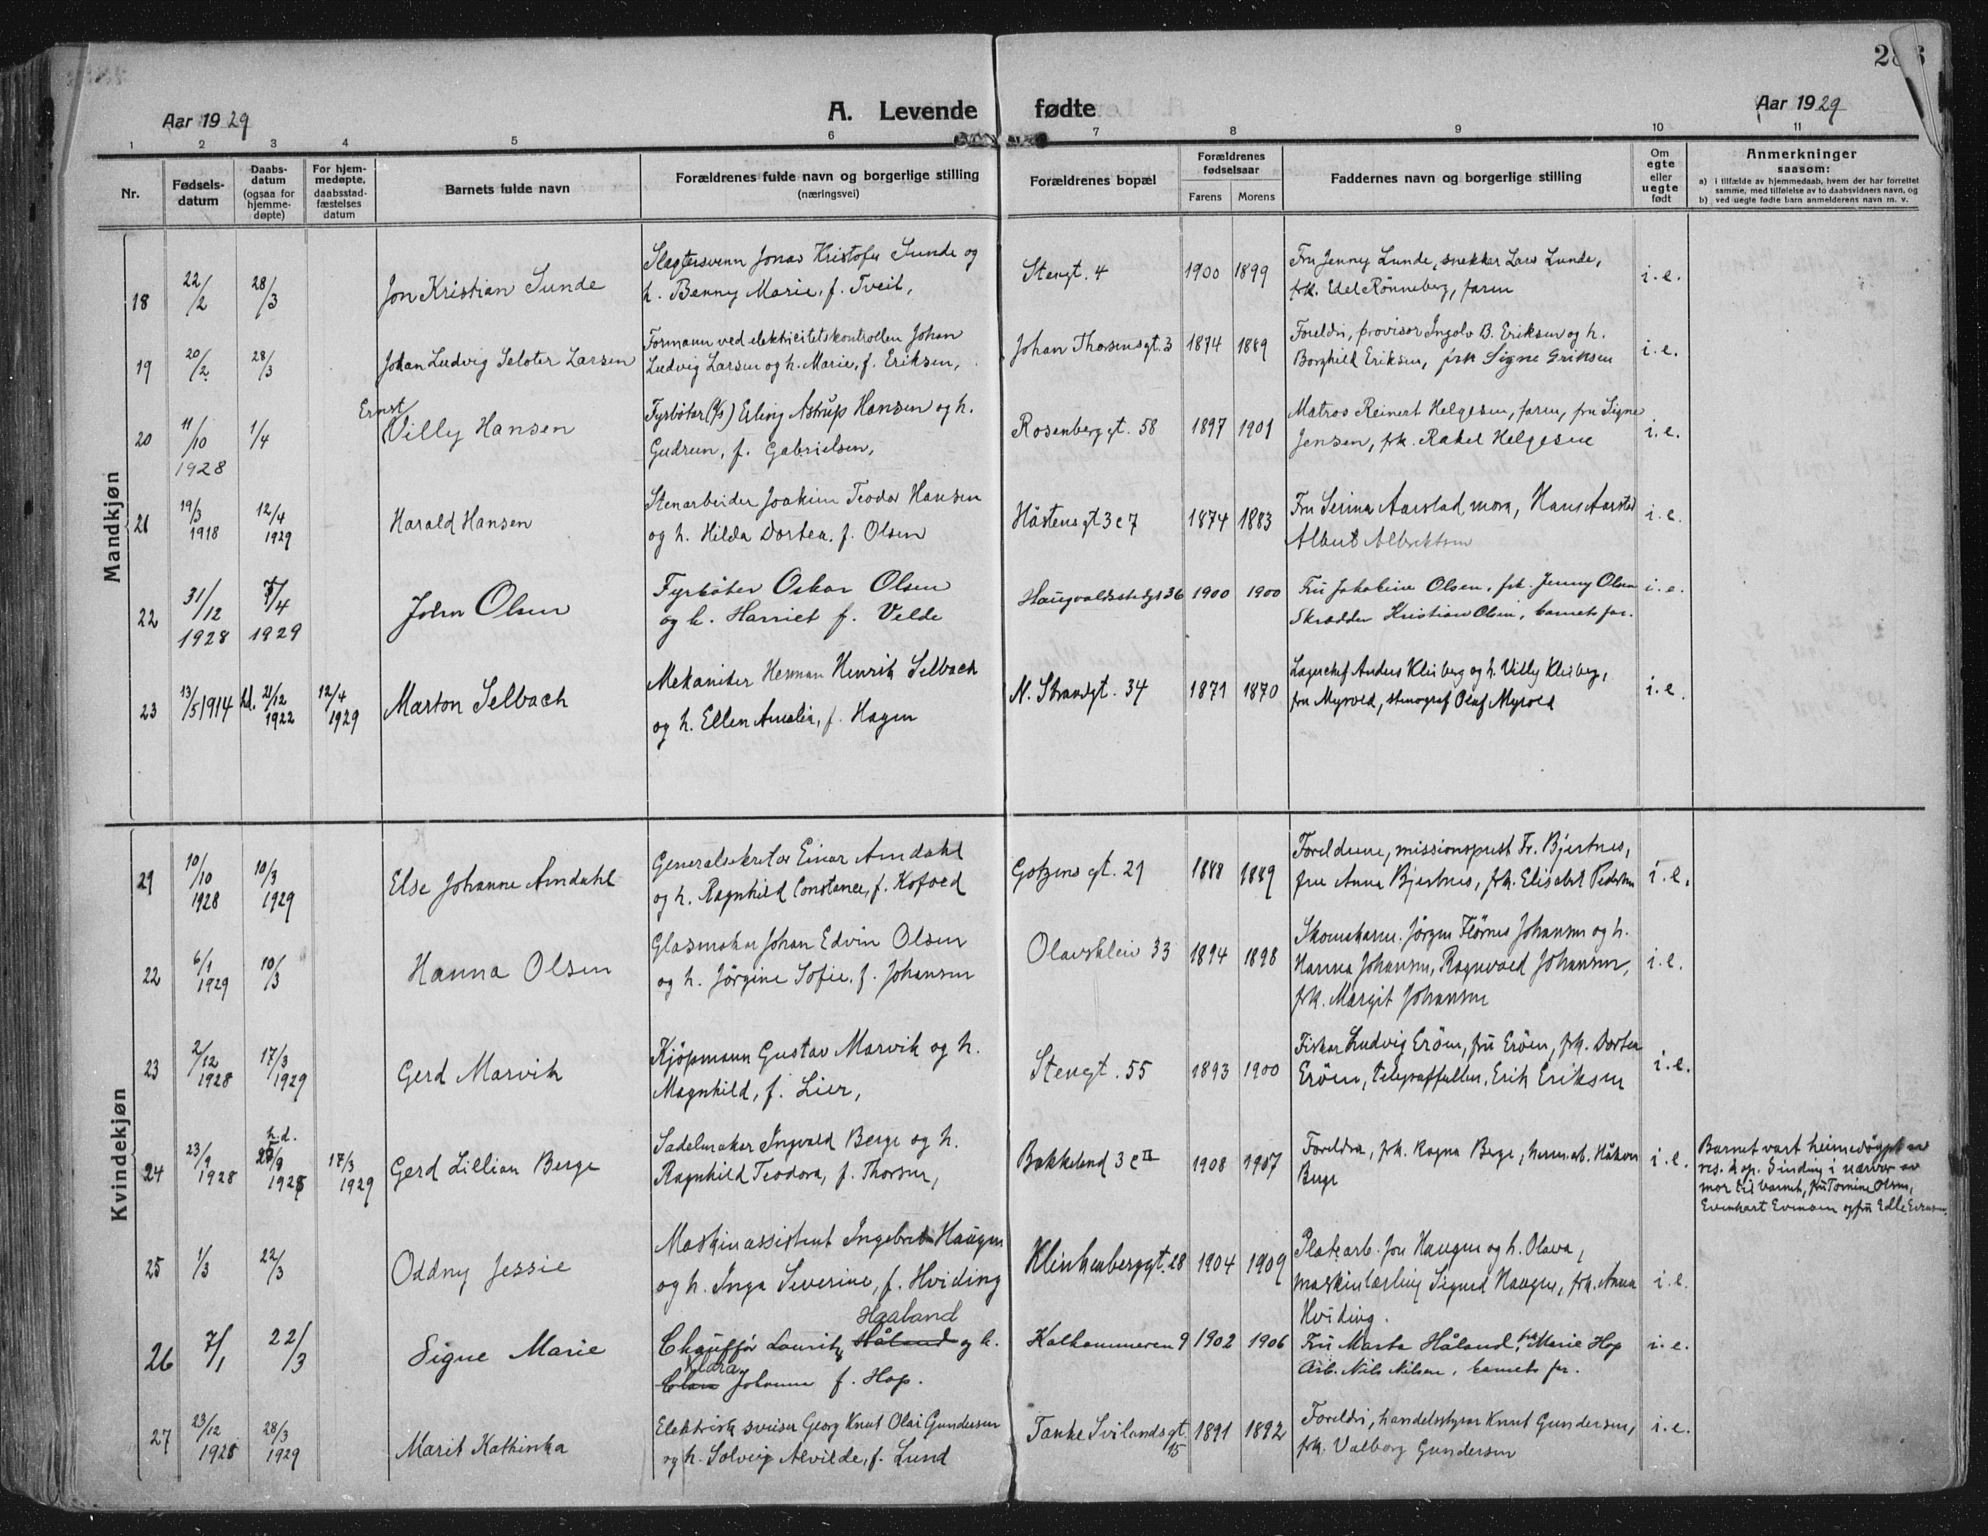 Aar 1929
A. Levende fødte
Aar 1929
1 2 3 4 5 6 7 8 9 10 11
Nr.
Fødsels-
datum
Daabs-
datum
(ogsaa for
hjemme-
døpte)
For hjem-
medøpte,
daabsstad-
fæstelses
datum
Barnets fulde navn
Forældrenes fulde navn og borgerlige stilling
(næringsvei)
Forældrenes bopæl
Forældrenes
fødselsaar
Farens Morens
Faddernes navn og borgerlige stilling
Om
egte
eller
uegte
født
Anmerkninger
saasom:
a) i tilfælde av hjemmedaab, hvem der har forrettet
samme, med tilføielse av to daabsvidners navn, og
b) ved uegte fødte barn anmelderens navn m. v.
Mandkjøn
18 22/2 28/3 Jon Kristian Sunde
Slagtersvenn Jonas Kristofer Sunde og
h. Benny Marie, f. Tveit,
Stengt. 4 1900 1899
Fru Jenny Lunde, snekker Lars Lunde,
frk. Edel Rönneberg, faren
i.e.
19 20/2 28/3 Johan Ludvig Seloter Larsen
Formann ved elektricitetskontrollen Johan
Ludvig Larsen og h. Marie, f. Eriksen,
Johan Thorsensgt. 3 1874 1889
Foreldri, provisor Ingolv B. Eriksen og h.
Borghild Eriksen, frk Signe Eriksen
i.e.
20 11/10 1928 1/4 Ernst
Villy Hansen
Fyrböter (d/s) Erling Astrup Hansen og h.
Gudrun, f. Gabrielsen,
Rosenberggt. 58 1897 1901
Matros Reinert Helgesen, faren, fru Signe
Jensen, frk. Rakel Helgesen
i.e.
21 19/3 1918 12/4 1929 Harald Hansen
Stenarbeider Joakim Teodor Hansen
og h. Hilda Dortea f. Olsen
Håstensgt 3c7 1874 1883
Fru Serina Aarstad, mora, Hans Aarstad
Albert Albrektsen
i.e.
22 31/12 1928 7/4 1929 John Olsen
Fyrböter Oskar Olsen
og h. Harriet f. Velde
Haugvaldsstadgt 36 1900 1900
Fru Jakobine Olsen, frk. Jenny Olsen
Skrædder Kristian Olsen, barnets far.
i.e.
23 13/5 1914 hd. 21/12 1922 12/4 1929 Marton Selbach
Mekaniker Herman Henrik Selbach
og h. Ellen Amalia, f. Hagen
N. Strandgt. 34 1871 1870
Lagerchef Anders Kleiberg og h. Villy Kleiberg,
fru Myrvold, stenograf Olaf Myrvold
i.e.
Kvindekjøn
21 10/10 1928 10/3 1929 Else Johanne Amdahl
Generalsekretær Einar Amdahl
og h. Ragnhild Constance, f. Kofoed
Götzens gt. 21 1888 1889
Foreldrene, missionsprest Fr. Bjertnes,
fru Anna Bjertnes, frk. Elisabet Pedersen
i.e.
22 6/1 1929 10/3 Hanna Olsen
Glasmaker Johan Edvin Olsen
og h. Jörgine Sofie, f. Johansen
Olavskleiv 33 1894 1898
Skomakarm. Jörgen Flörnes Johansen og h.
Hanna Johansen, Ragnvald Johansen,
frk. Margit Johansen
i.e.
23 2/12 1928 17/3 1929 Gerd Marvik
Kjöpmann Gustav Marvik og h.
Magnhild, f. Lier,
Stengt. 55 1893 1900
Fiskar Ludvig Eröen, fru Eröen, frk. Dortea
Eröen, telegraffullm. Erik Eriksen
i.e.
24 23/9 1928 h.d. 25/9 1928 17/3 1929 Gerd Lillian Berge
Sadelmaker Ingvald Berge og h.
Ragnhild Teodora, f. Thorsen,
Bakkelund 3c II 1908 1907
Foreldra, frk. Ragna Berge, herm.arb. Håkon
Berge
i.e.
Barnet vart heimedöypt av
res. kap. Sinding i nærver av
mor til barnet, fru Tomine Olsen,
Evenhart Evensen og fru Edle Evensen.
25 1/3 22/3 Oddny Jessie
Maskinassistent Ingebret Haugen
og h. Inga Severine, f. Hviding
Klinkenberggt. 28 1904 1909
Platearb. Jon Haugen og h. Olava,
maskinlærling Sigurd Haugen, frk. Anna
Hviding.
i.e.
26 7/1 22/3 Signe Marie
Haaland
Chauffør Lauritz Håland og h.
Klara
Clara Johanne f. Hop.
Kalhammeren 9 1902 1906
Fru Marta Håland, frk. Marie Hop
Arb. Nils Nilsen, barnets far.
i.e.
27 23/12 1928 28/3 1929 Marit Kathinka
Elektrisk sveiser Georg Knut Olai Gundersen
og h. Solveig Alvilde, f. Lund
Tanke Svilandsgt. 15 1891 1892
Foreldri, handelsstyrar Knut Gundersen,
frk. Valborg Gundersen
i.e.